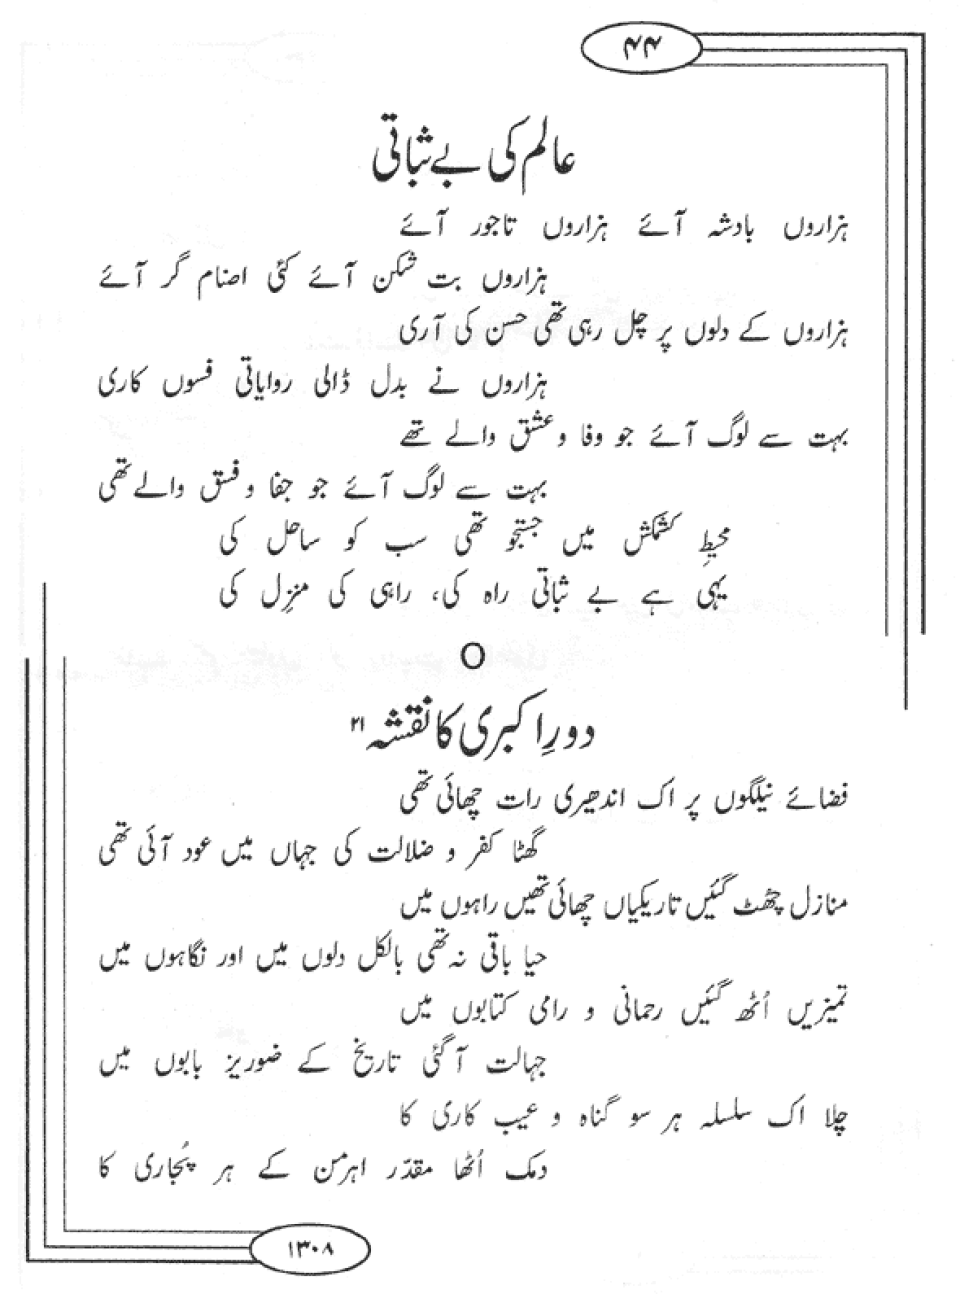 ۴۴
عالم کی بے ثباتی
ہزاروں بادشہ آئے ہزاروں تاجور آئے
ہزاروں بت شکن آئے کئی اصنام گر آئے
ہزاروں کے دلوں پر چل رہی تھی حسن کی آری
ہزاروں نے بدل ڈالی روایاتی فسوں کاری
بہت سے لوگ آئے جو وفا و عشق والے تھے
بہت سے لوگ آئے جو جفا و فسق والے تھی
محیطِ کشمکش میں جستجو تھی سب کو ساحل کی
یہی ہے بے ثباتی راہ کی، راہی کی منزل کی
O
دورِ اکبری کا نقشہ ۲۱
فضائے نیلگوں پر اک اندھیری رات چھائی تھی
گھٹا کفر و ضلالت کی جہاں میں عود آئی تھی
منازل چھٹ گئیں تاریکیاں چھائی تھیں راہوں میں
حیا باقی نہ تھی بالکل دلوں میں اور نگاہوں میں
تمیزیں اُٹھ گئیں رحمانی و رامی کتابوں میں
جہالت آ گئی تاریخ کے ضوریز بابوں میں
چلا اک سلسلہ ہر سو گناہ و عیب کاری کا
دمک اُٹھا مقدّر اہرمن کے ہر پُجاری کا
۱۳۰۸